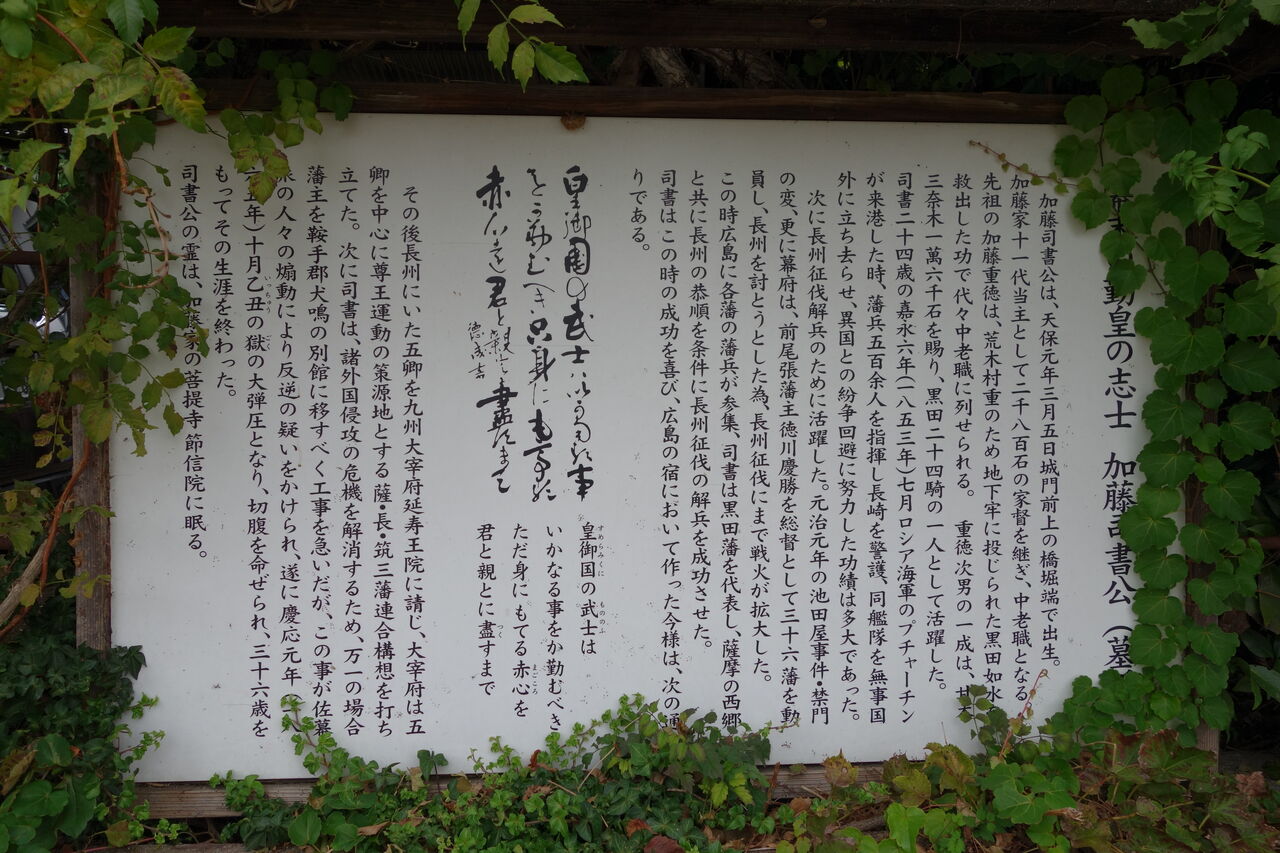 勤皇の志士 加藤司書公（墓
加藤司書公は、天保元年三月五日城門前上の橋堀端で出生。
加藤家十一代当主として二千八百石の家督を継ぎ、中老職となる
先祖の加藤重徳は、荒木村重のため地下牢に投じられた黒田如水
救出した功で代々中老職に列せられる。 重徳次男の一成は、甘
三奈木一萬六千石を賜り、黒田二十四騎の一人として活躍した。
司書二十四歳の嘉永六年（一八五三年）七月ロシア海軍のプチャーチン
が来港した時、藩兵五百余人を指揮し長崎を警護、同艦隊を無事国
外に立ち去らせ、異国との紛争回避に努力した功績は多大であった。
次に長州征伐解兵のために活躍した。元治元年の池田屋事件・禁門
の変、更に幕府は、前尾張藩王徳川慶勝を総督として三十六藩を動
員し、長州を討とうとした為、長州征伐にまで戦火が拡大した。
この時広島に各藩の藩兵が参集、司書は黒田藩を代表し、薩摩の西郷
と共に長州の恭順を条件に長州征伐の解兵を成功させた。
司書はこの時の成功を喜び、広島の宿において作った今様は、次の通
りである。
皇御國の武士はいかなる事
をか勤むへき只身にもてる
赤心を君と親に盡すまて
徳成書
皇御国の武士は
いかなる事をか勤むべき
ただ身にもてる赤心を
君と親とに盡すまで
その後長州にいた五卿を九州大宰府延寿王院に請じ、大宰府は五
卿を中心に尊王運動の策源地とする薩・長・筑三藩連合構想を打ち
立てた。次に司書は、諸外国侵攻の危機を解消するため、万一の場合
藩主を鞍手郡犬鳴の別館に移すべく工事を急いだが、この事が佐幕
派の人々の煽動により反逆の疑いをかけられ、遂に慶応元年（
五年）十月乙丑の獄の大弾圧となり、切腹を命ぜられ、三十六歳を
もってその生涯を終わった。
司書公の霊は、加藤家の菩提寺節信院に眠る。